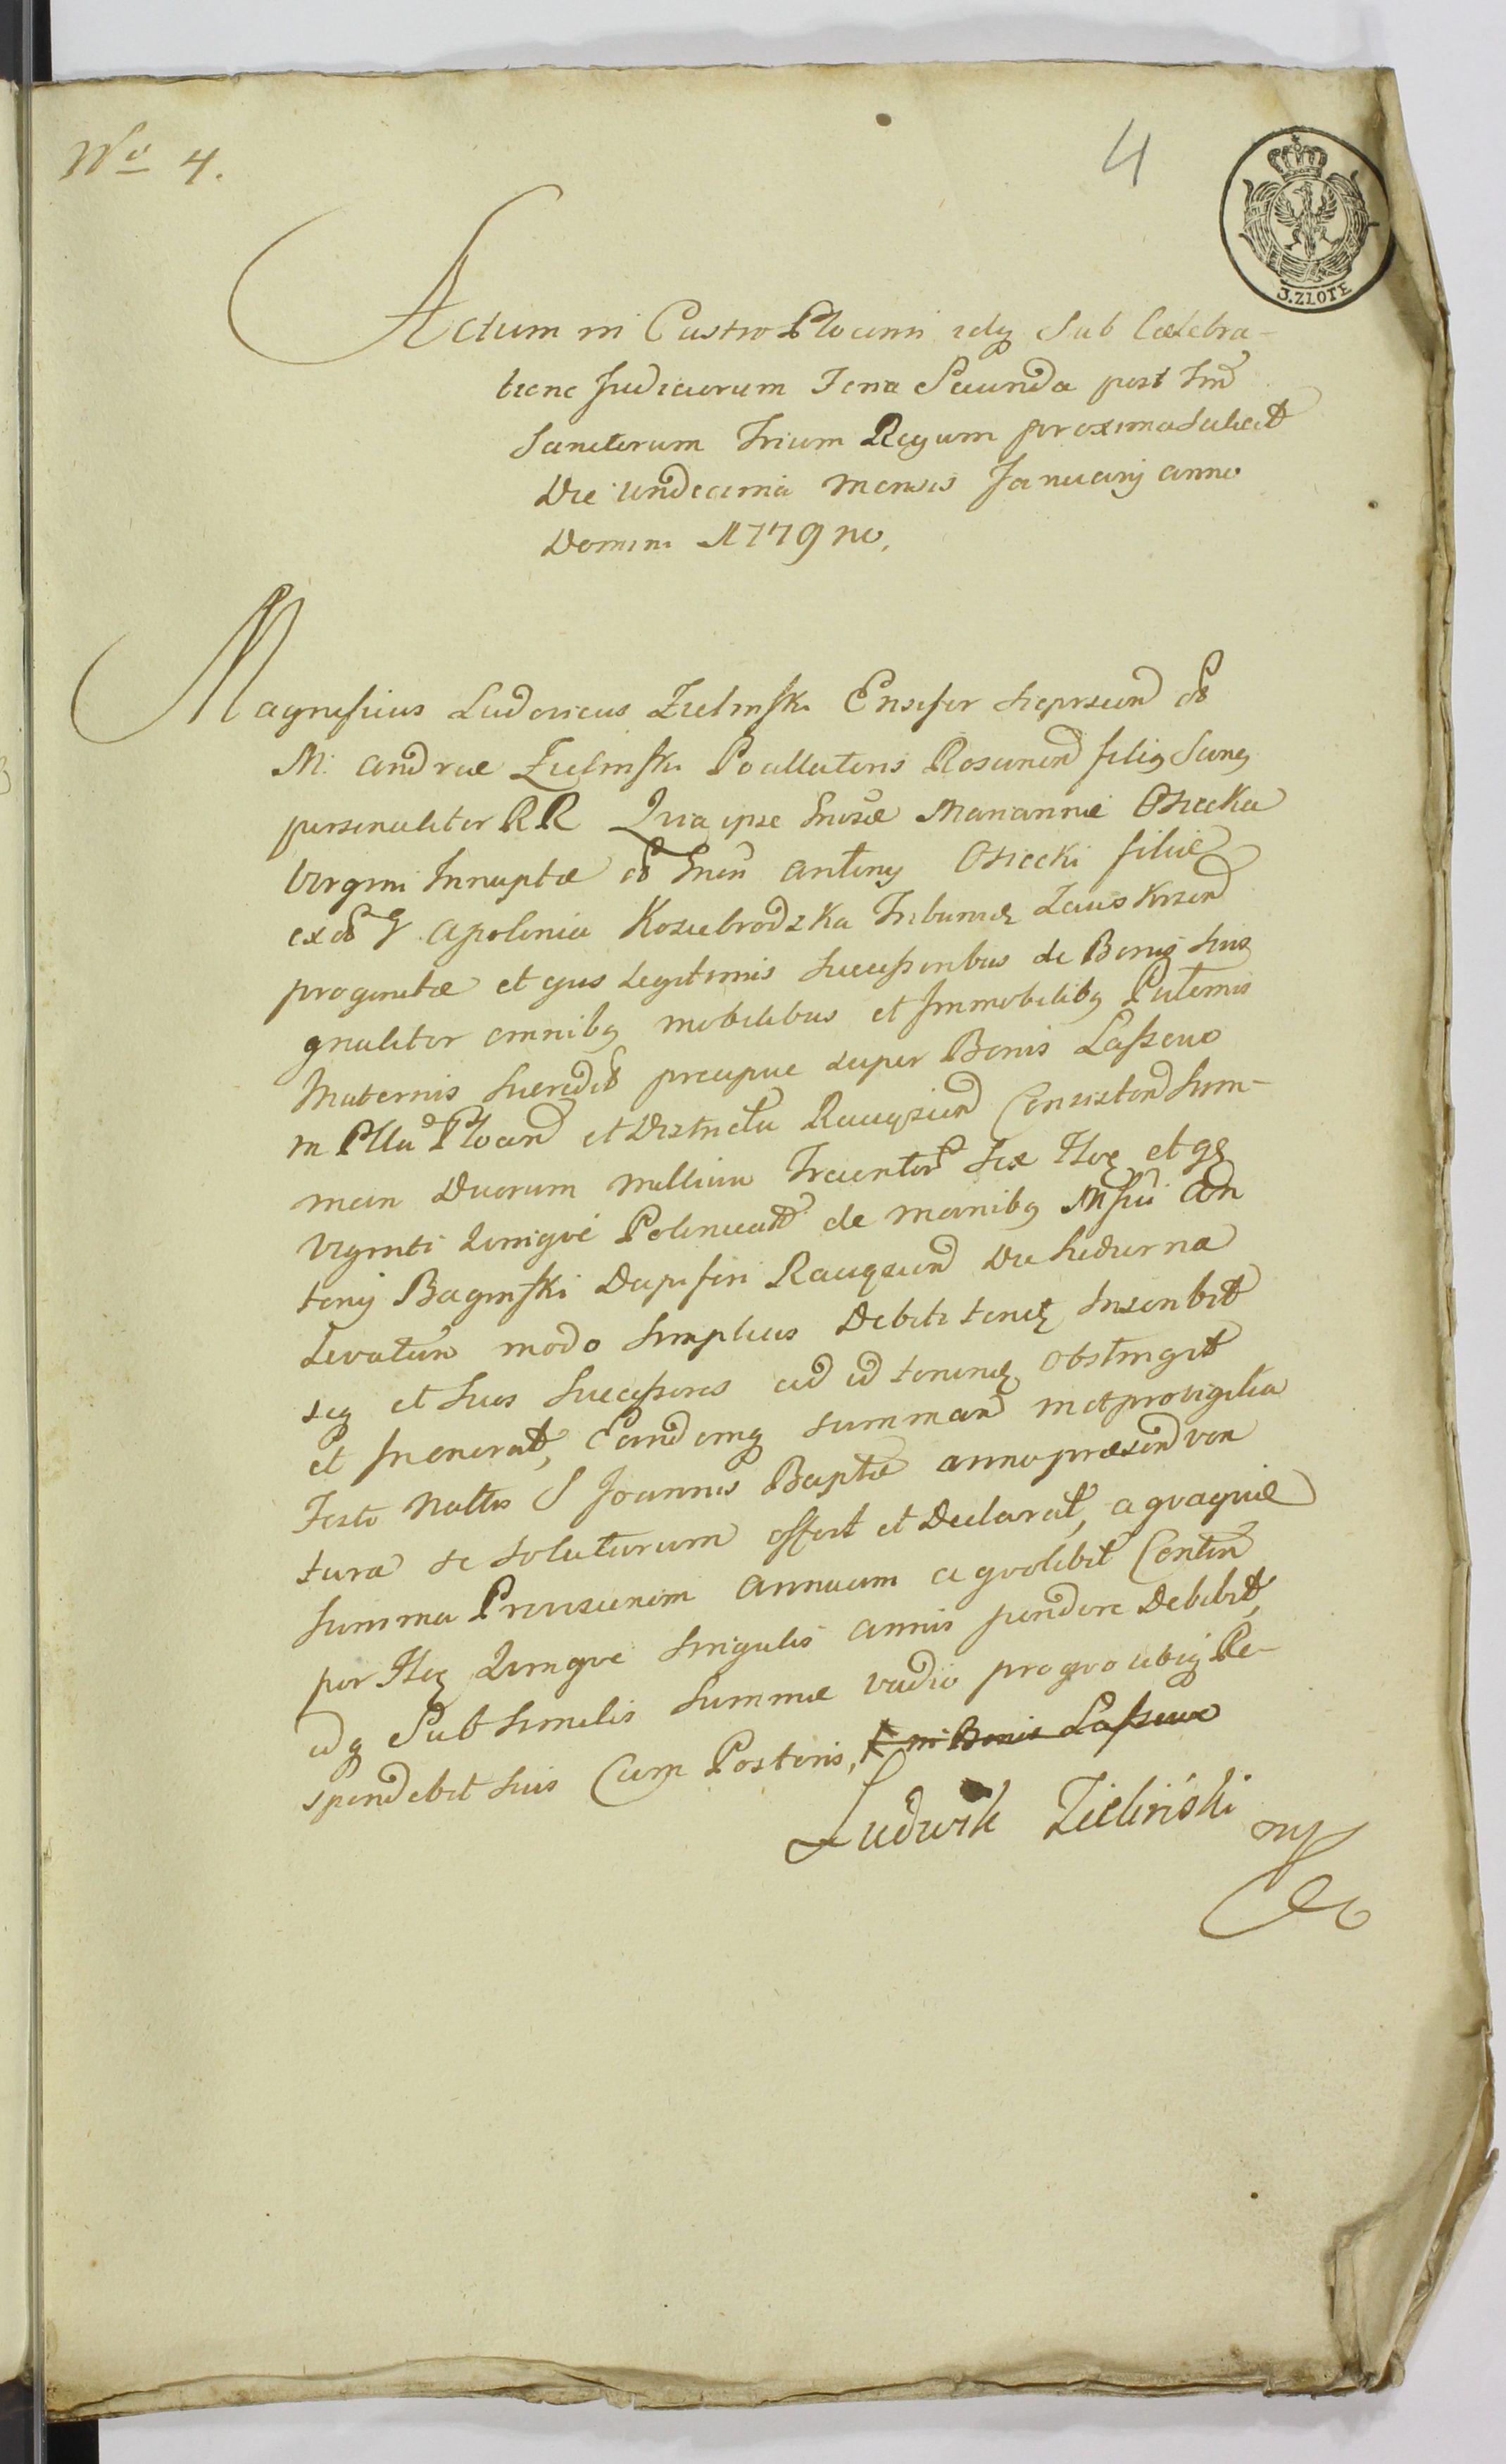 No 4.
4
3. ZŁOTE
Actum in Castro Plocensi idq Sub Caelebra-
tione Judiciorum Feria Secunda post Fm
Sanctorum Trium Regum proxima Salicet
Die undecima Mensis Januarij anno
Domini 1779no.
Magnificus Ludovicus Zielinski Ensifer Sieprscen olim
M. Andreae Zielinski Pocillatoris Rosanen filiq Sanq
personaliter RR Quia ipse Gnosae Mariannae Osiecka
Virgini Innuptae olim Gnsi Antonij Osiecki filiae
ex olim G Apolonia Kosiebrodzka Tribunid Zawskrzen
progenitae et ejus Legitimis Successoribus de Bonis suis
gnaliter omnibq mobilibus et Immobilibq Paternis
Maternis Haeredit precipue super Bonis Laszewo
in Pltu Plocen et Districtu Raciqzien Consisten Sum-
mam Duorum Millium Trecentor Sex Floq et gs
Viginti Quinque Polonicat de manibq Mfici An
tonij Baginski Dapiferi Raciqzien Die hodierna
Levatam modo simplicis Debiti tenet Inscribit
seq et suos Successores ad id tenend obstringit
et Inonerat, Eandemq summam met pro vigilia
Festo Natlis S Joannis Baptae anno praesen ven
tura se soluturum offert et Declarat, a quaquae
summa Provisionem annuam a quolibet Centen
per Floq Quinque singulis annis pendere Debebit,
idq Sub similis summae vadio pro quo ubiq Re-
spondebit suis Cum Posteris, in Bonis Laszewo
Ludwik Zieliński mp